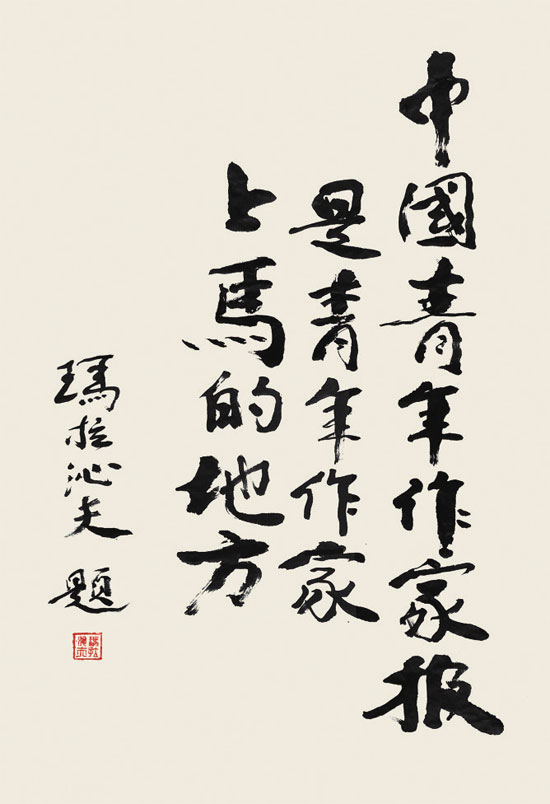 中國青年作家报
是青年作家
上馬的地方
瑪拉沁夫 题